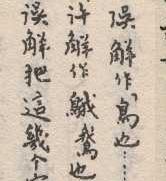 误解作"鳥也……
许解作鱥鶩也
误解把這幾个字